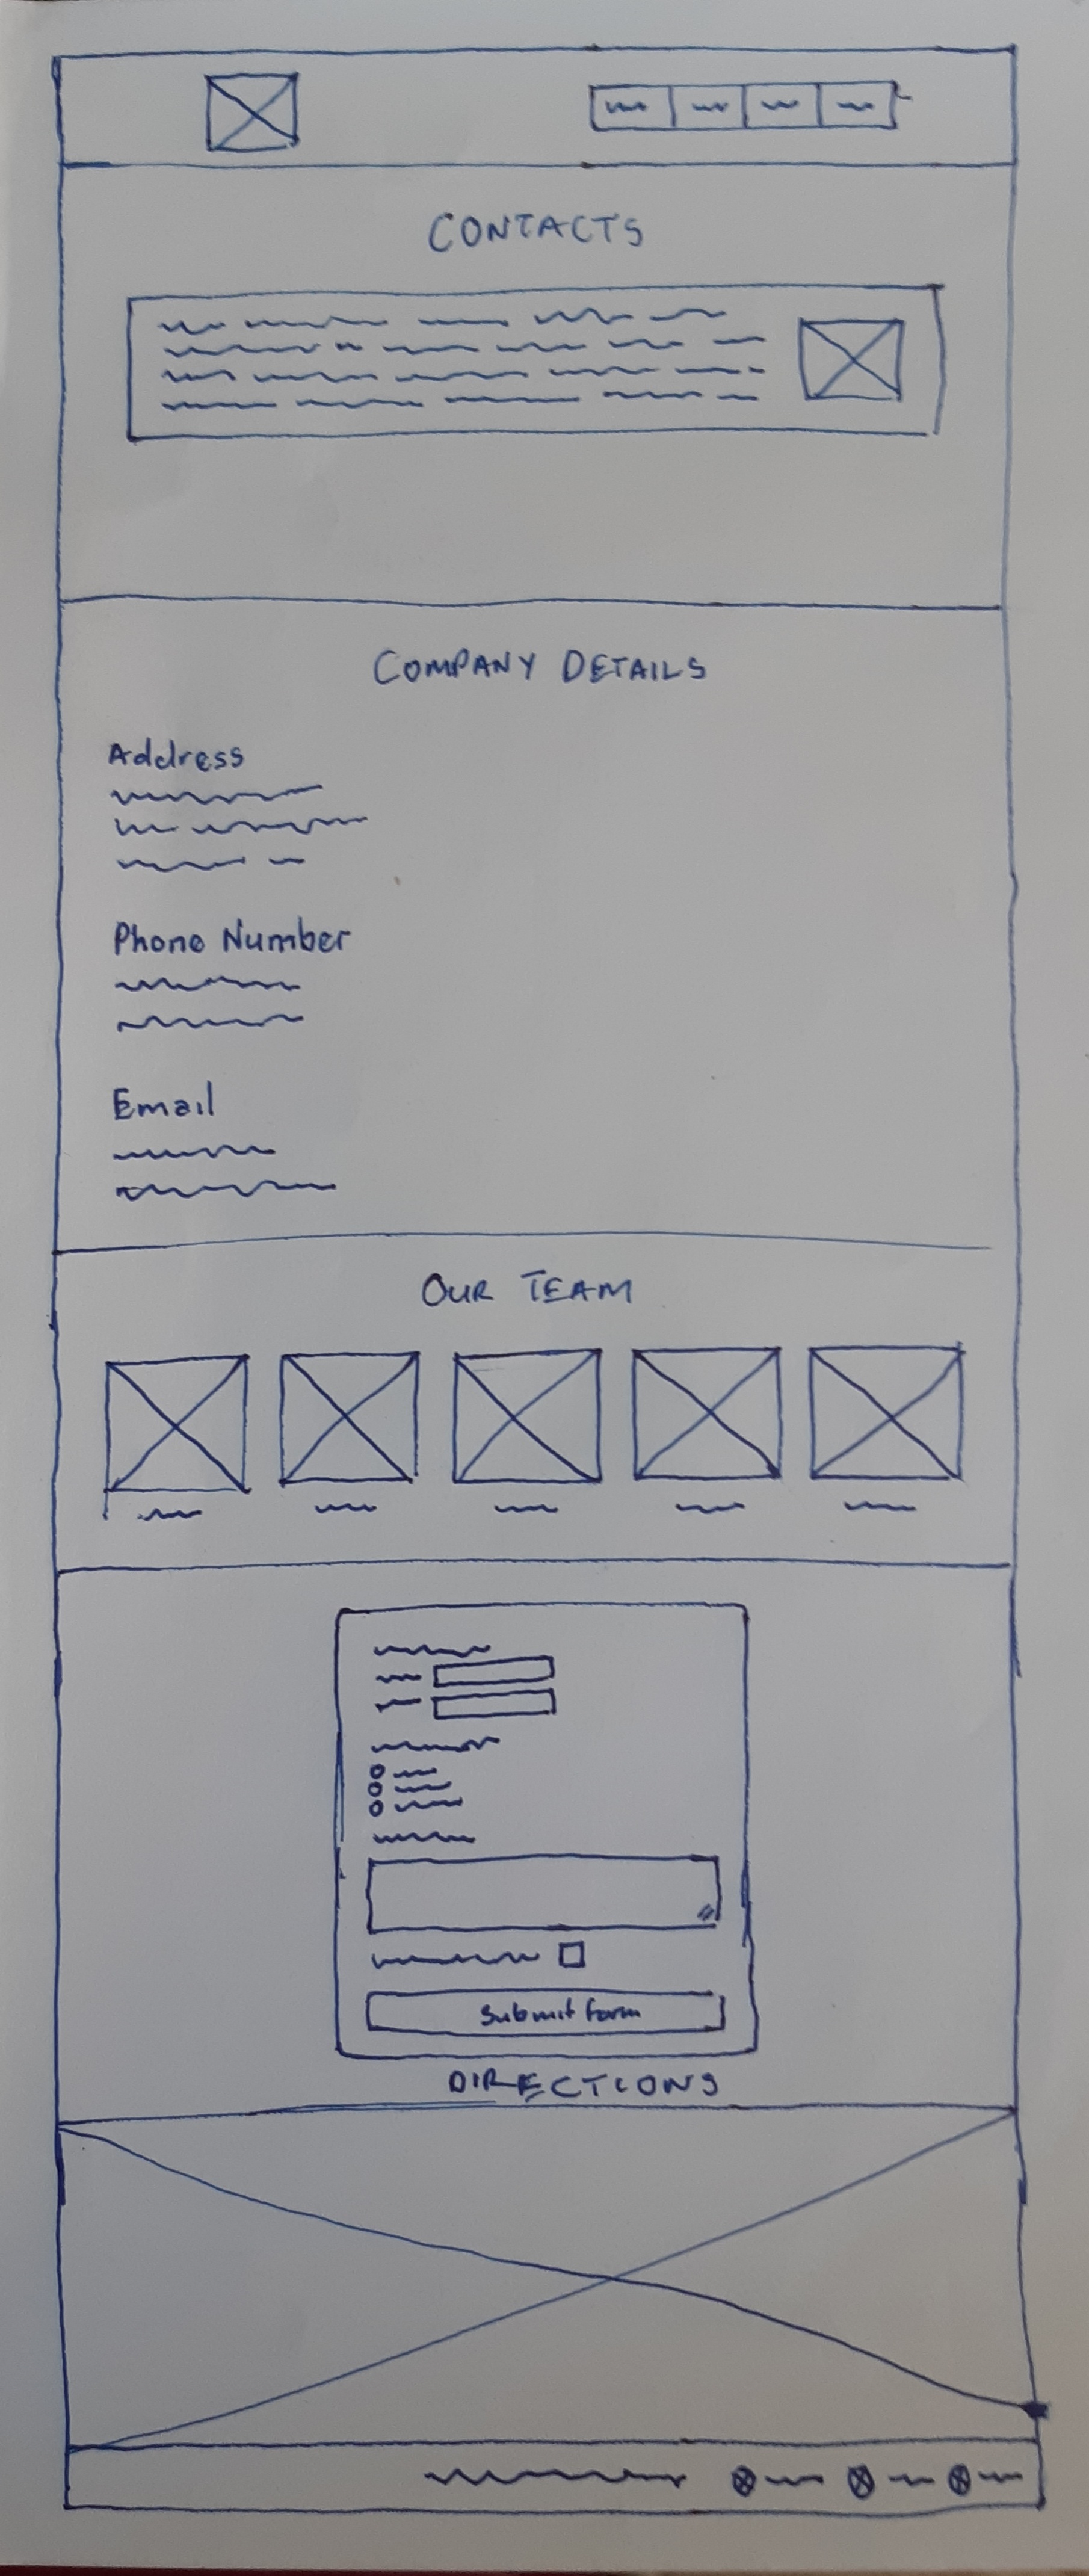 CONTACTS
COMPANY DETAILS
Address
Phone Number
Email
OUR TEAM
Submit form
DIRECTIONS